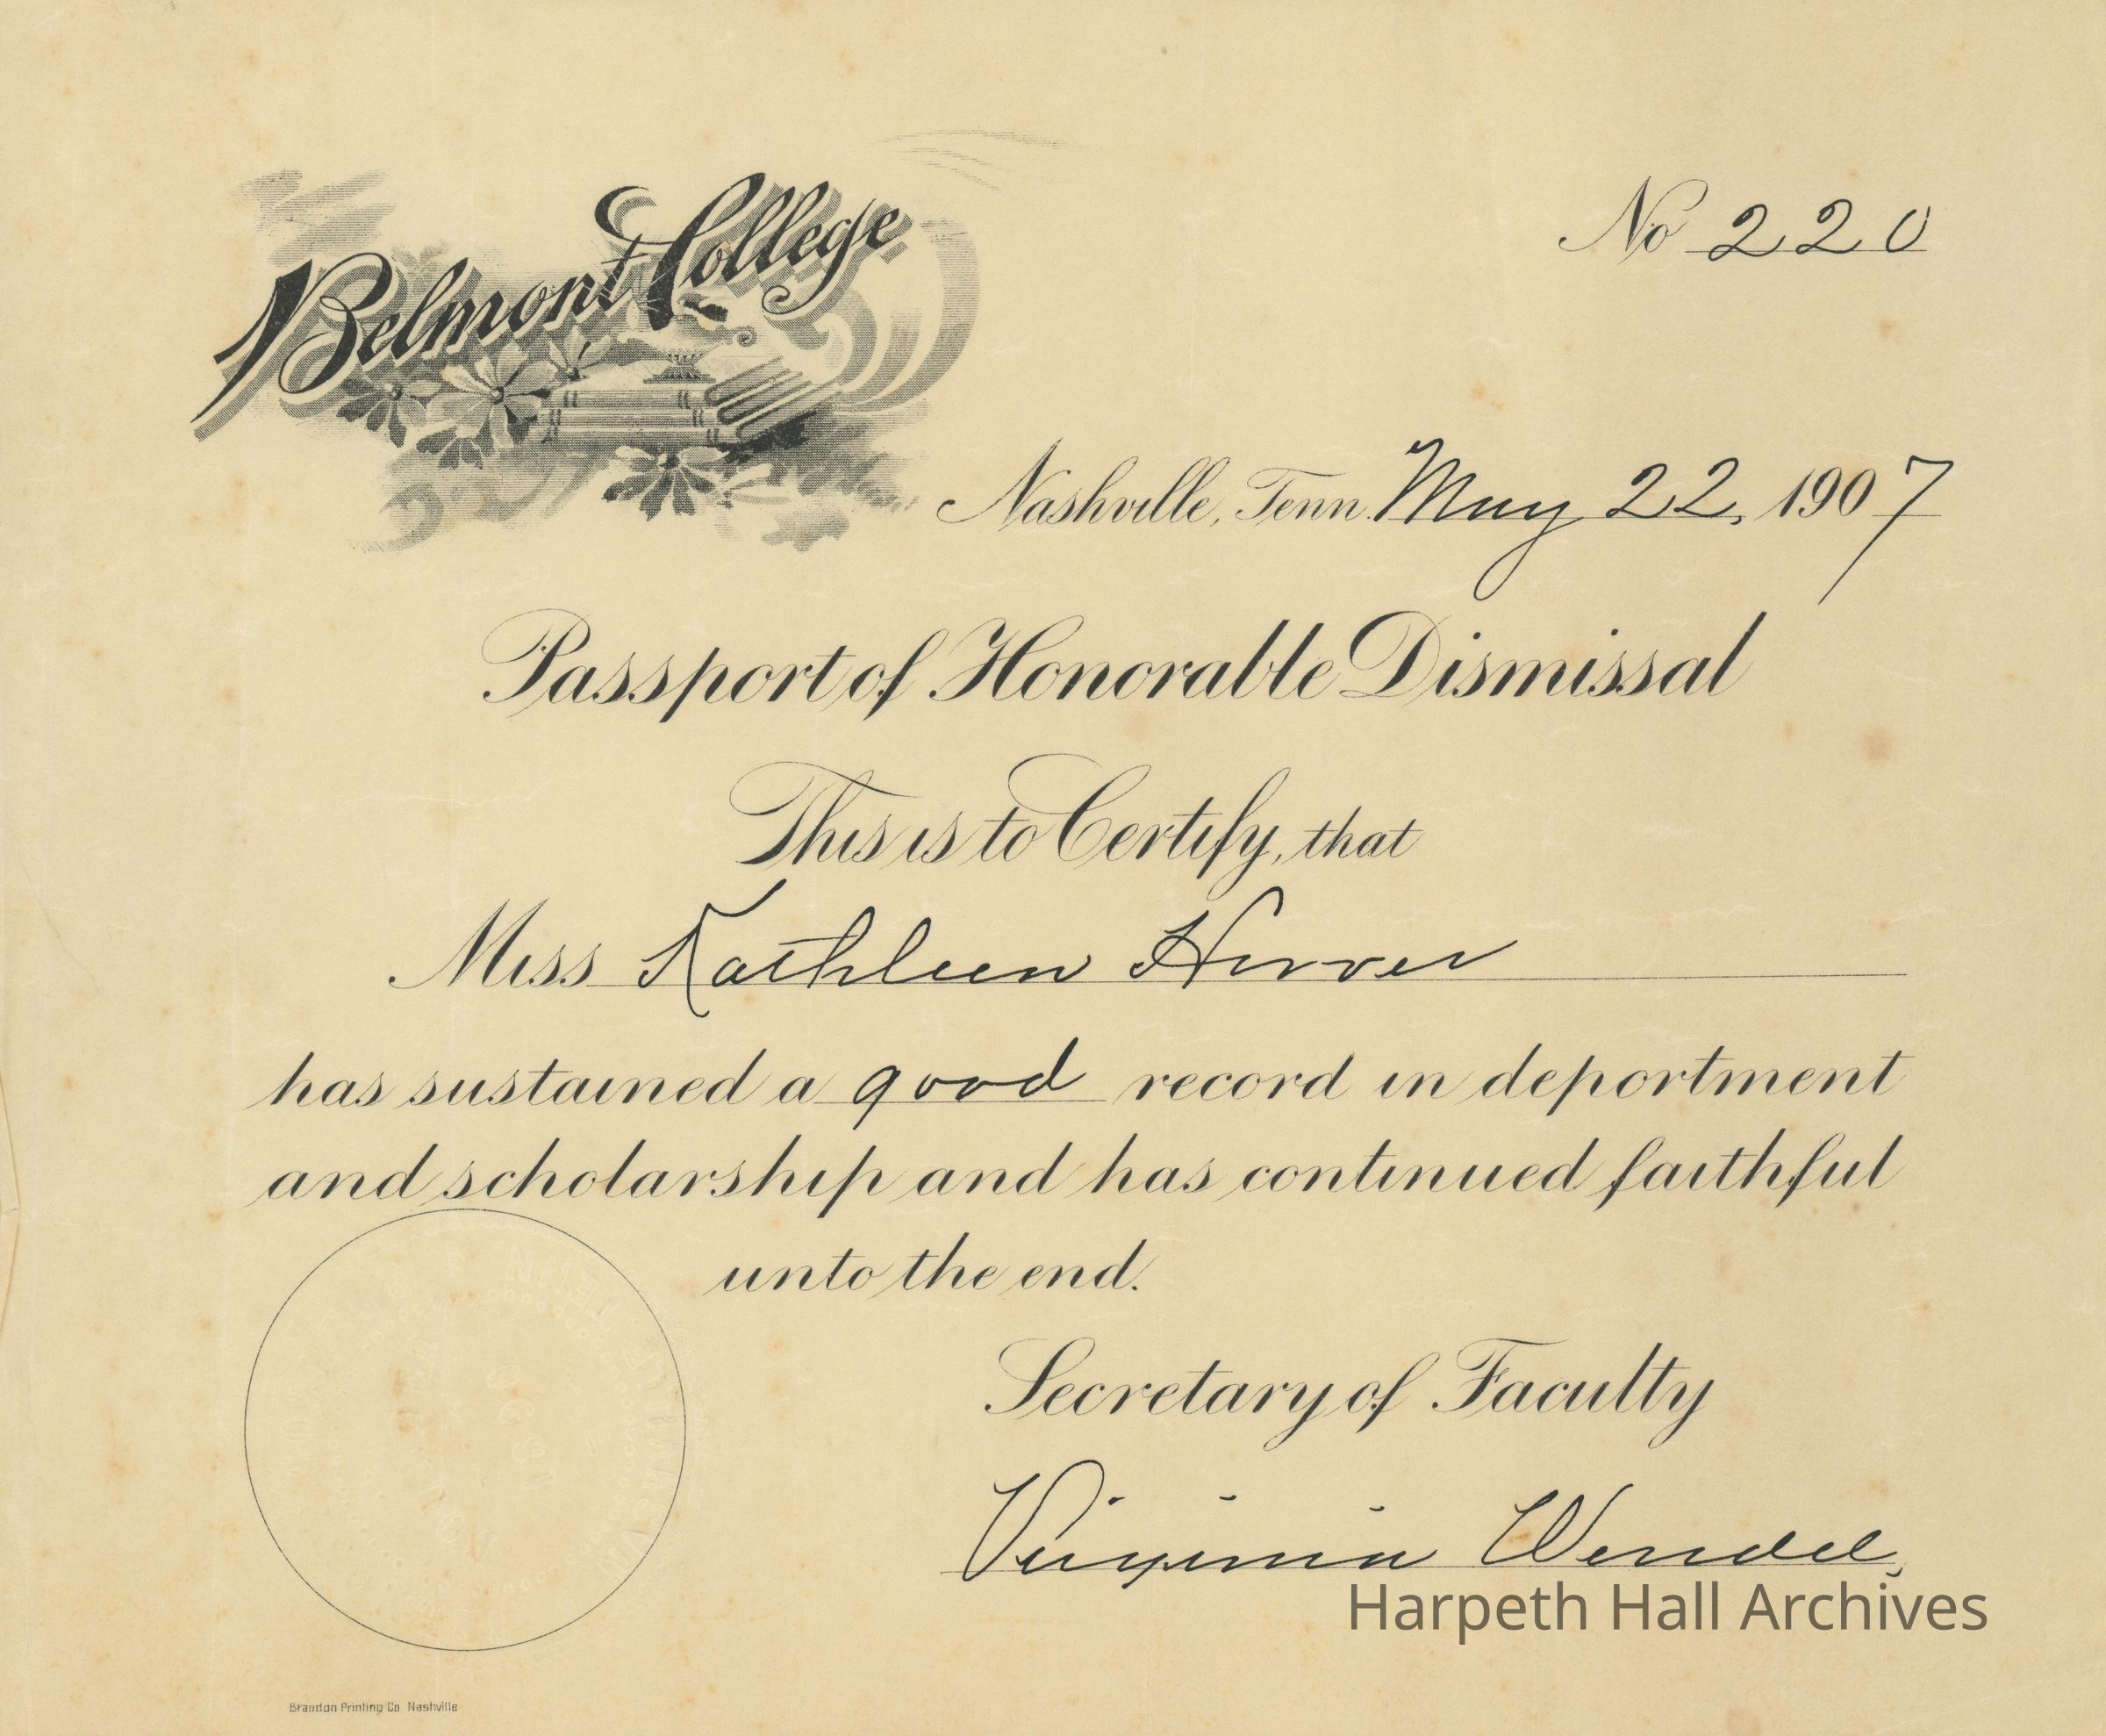 Belmont College
No 220
Nashville, Tenn. May 22, 1907
Passport of Honorable Dismissal
This is to Certify, that
Miss Kathleen
has sustained a good record in deportment
and scholarship and has continued faithful
unto the end.
Secretary of Faculty
Virginia Wendel,
Harpeth Hall Archives
Brandon Printing Co Nashville